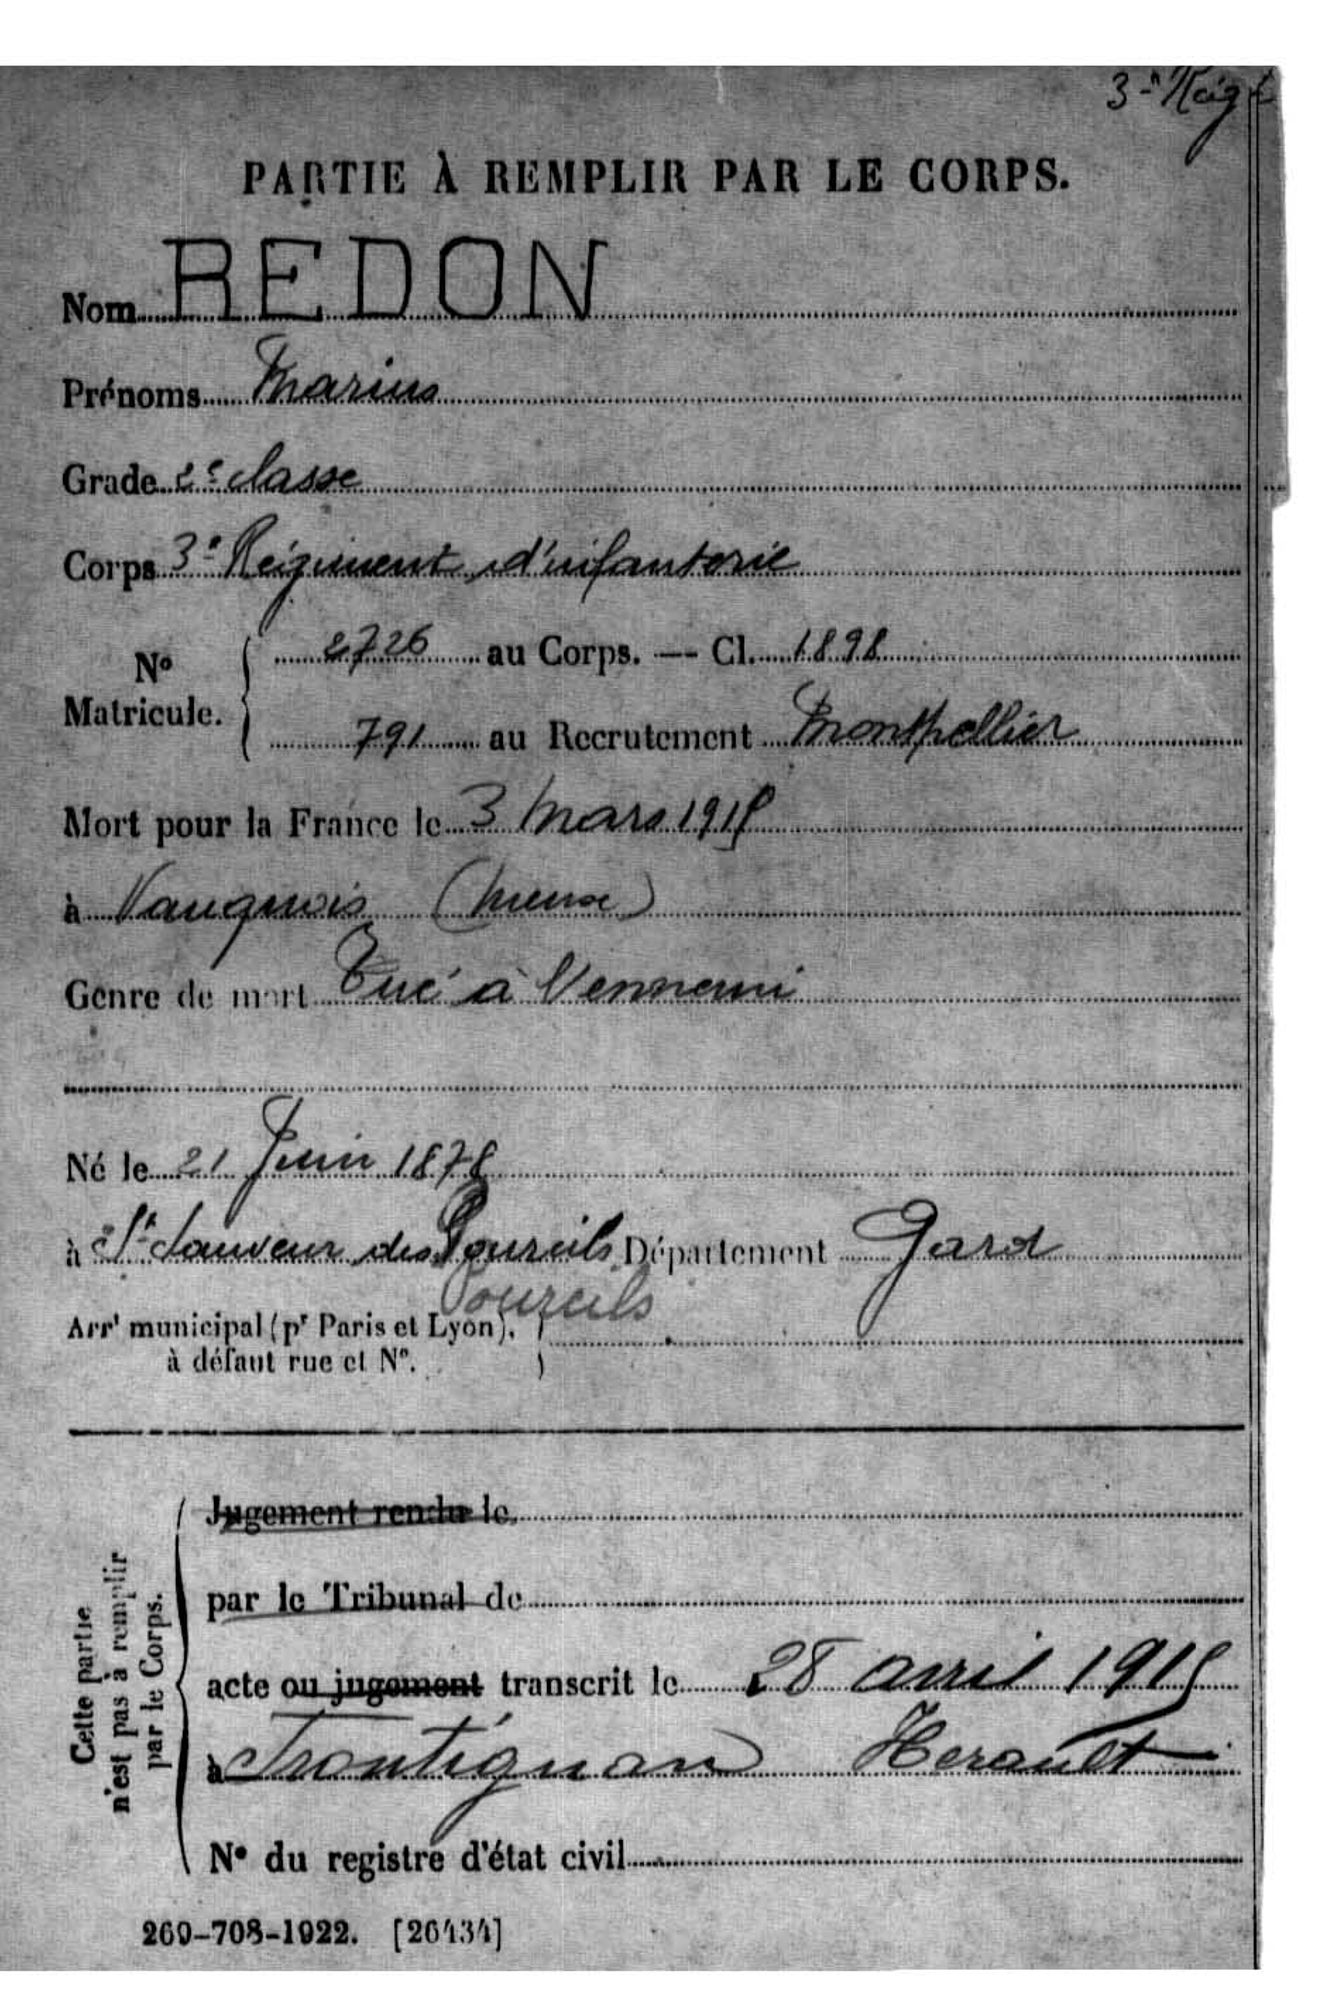 3e Régt
PARTIE À REMPLIR PAR LE CORPS.
Nom REDON
Prénoms Marius
Grade 2e classe
Corps 3e Régiment d'infanterie
No Matricule. { 2726 au Corps. — Cl. 1898
791 au Recrutement Montpellier
Mort pour la France le 3 Mars 1915
à Vauquois (Meuse)
Genre de mort Tué à l'ennemi
Né le 21 Juin 1878
à St Sauveur des Pourcils Département Gard
Pourcils
Arrt municipal (pr Paris et Lyon),
à défaut rue et No.
Cette partie
n'est pas à remplir
par le Corps.
Jugement rendu le
par le Tribunal de
acte ou jugement transcrit le 28 avril 1915
à Frontignan Herault
No du registre d'état civil
269-708-1922. [26434]